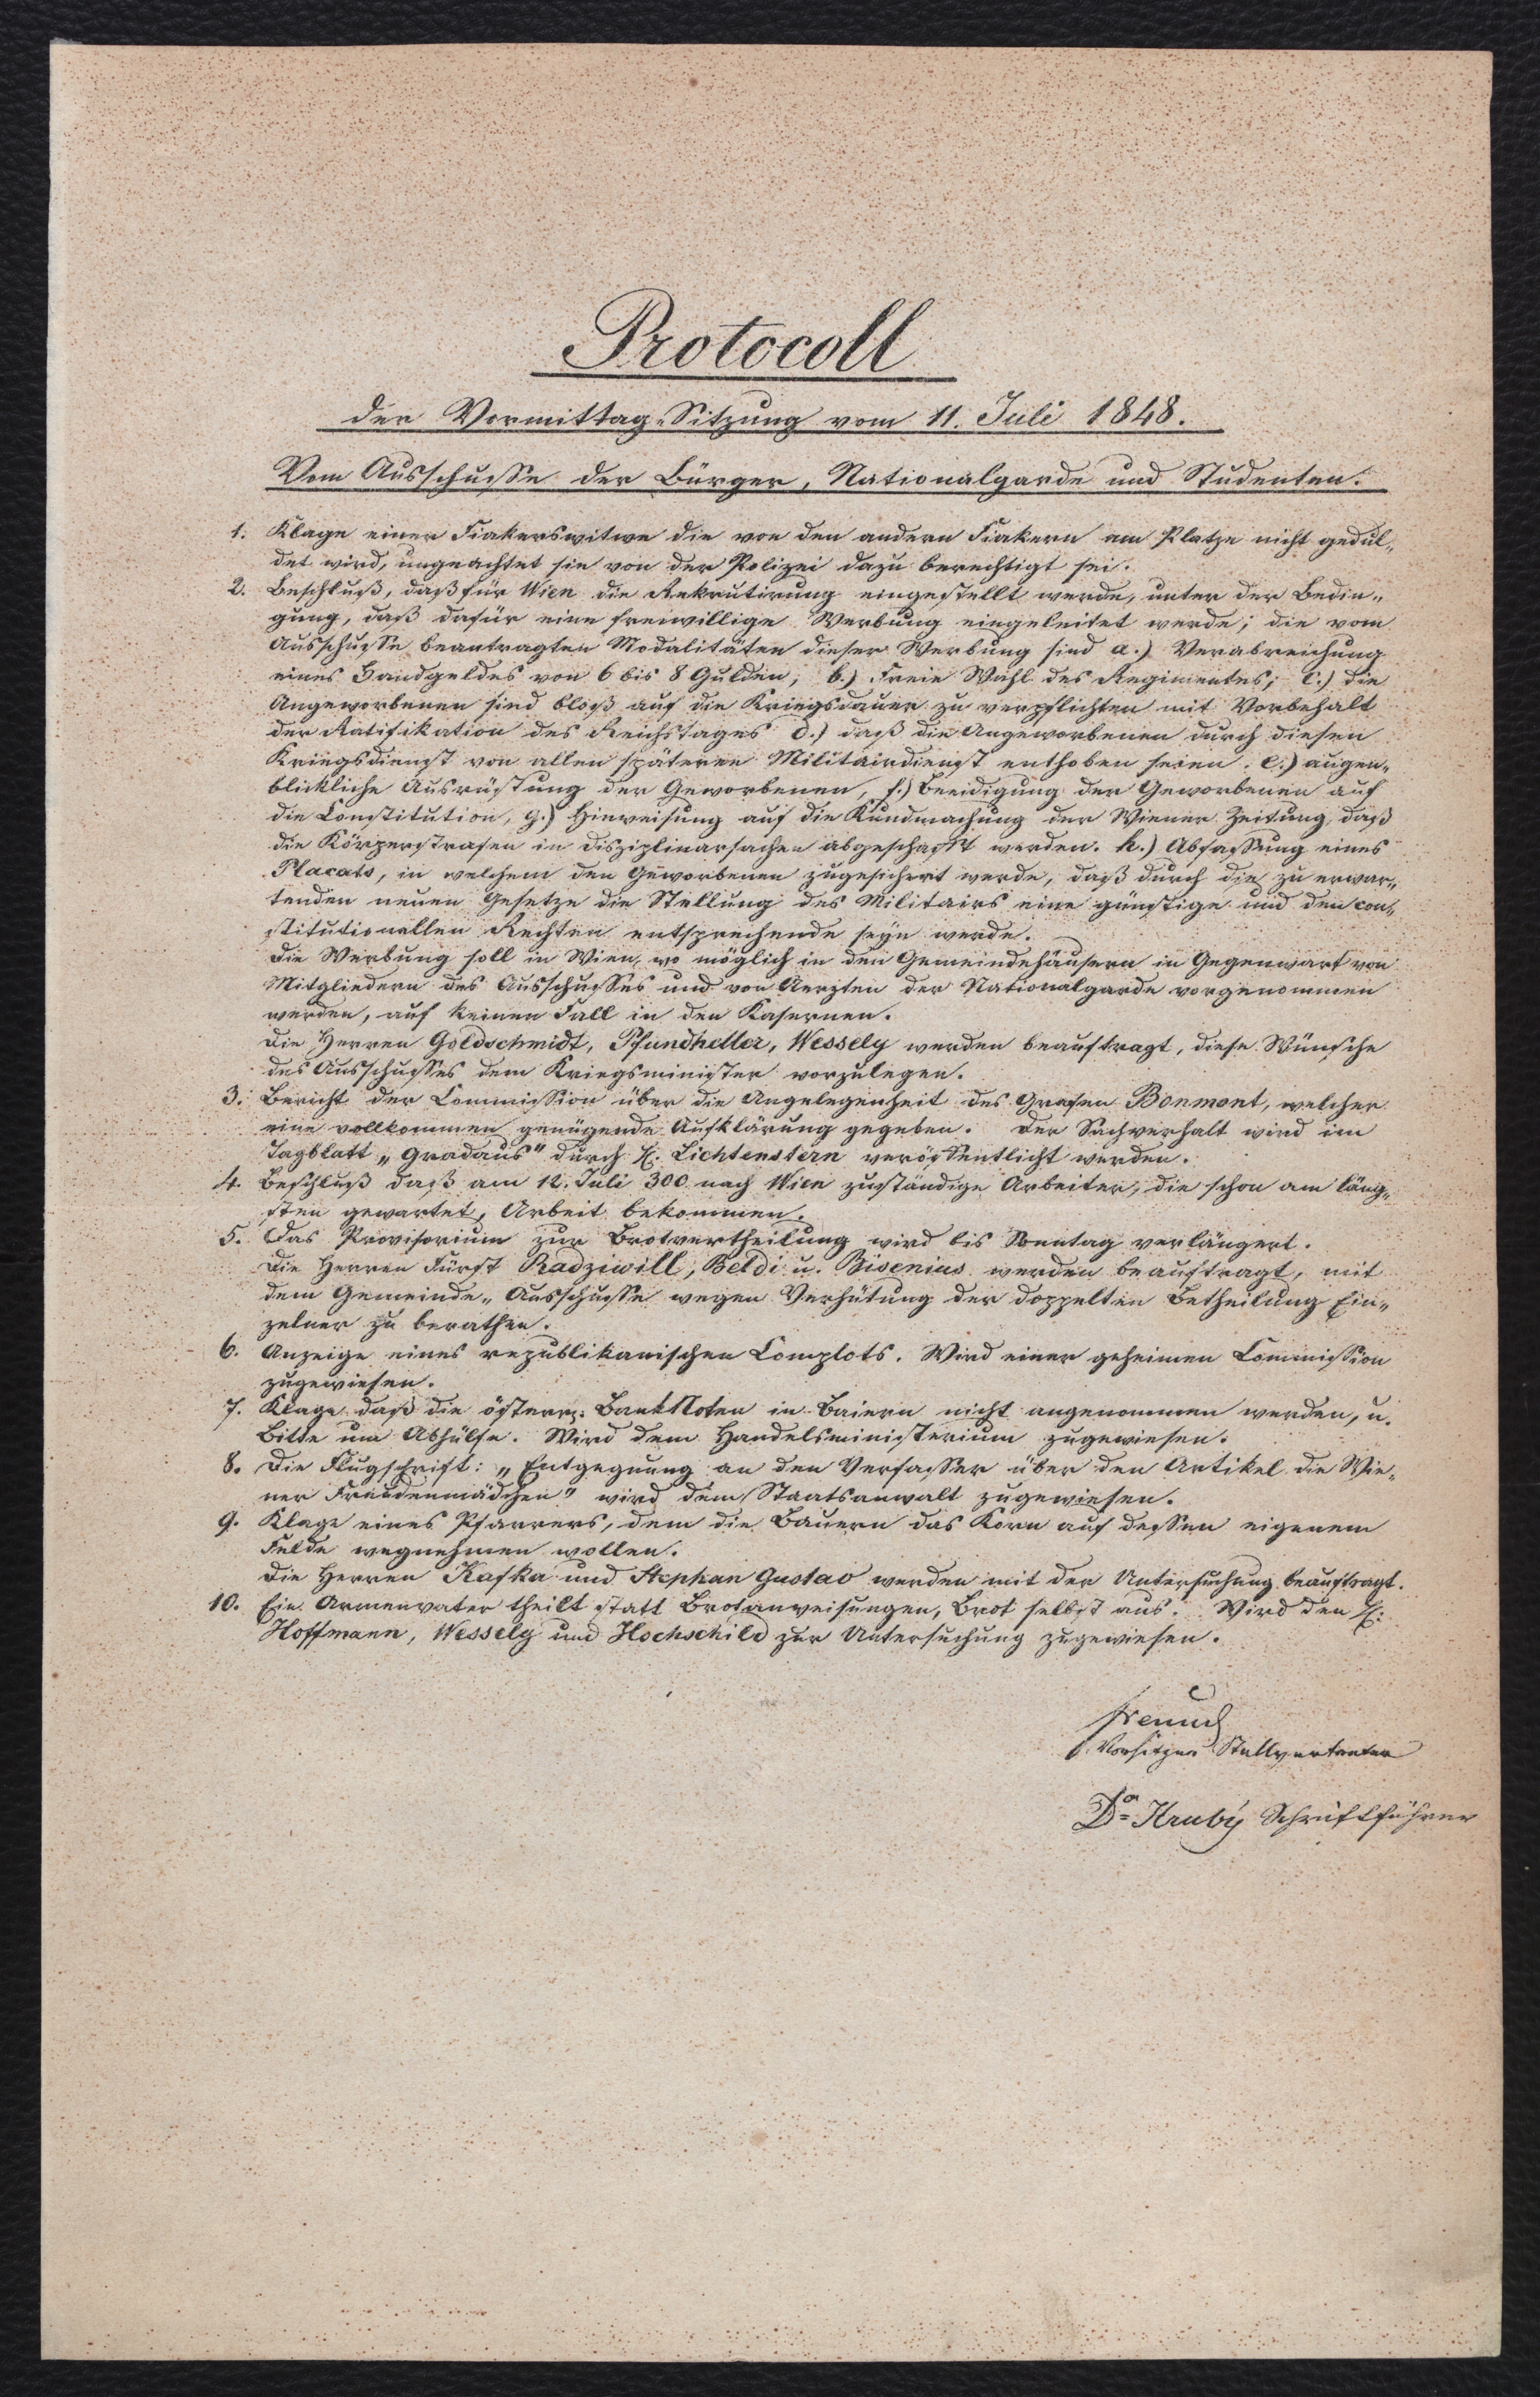 Protocoll
der Vormittag-Sitzung vom 11. Juli 1848.
Vom Ausschusse der Bürger, Nationalgarde und Studenten.
1. Klage einer Fiakerswitwe die von den andern Fiakern am Platze nicht gedul-
det wird, ungeachtet sie von der Polizei dazu berechtigt sei.
2. Beschluß, daß für Wien die Rekrutirung eingestellt werde, unter der Bedin-
gung, daß dafür eine freiwillige Werbung eingeleitet werde; die vom
Ausschusse beantragten Modalitäten dieser Werbung sind a.) Verabreichung
eines Handgeldes von 6 bis 8 Gulden; b.) Freie Wahl des Regimentes; c.) die
Angeworbenen sind bloß auf die Kriegsdauer zu verpflichten mit Vorbehalt
der Ratifikation des Reichstages d.) daß die Angeworbenen durch diesen
Kriegsdienst von allen späteren Militairdienst enthoben seien. e.) augen-
blickliche Ausrüstung der Geworbenen, f.) Beeidigung der Geworbenen auf
die Constitution, g.) Hinweisung auf die Kundmachung der Wiener Zeitung daß
die Körperstrafen in disziplinarsachen abgeschafft werden. h.) Abfassung eines
Placats, in welchem den Geworbenen zugesichert werde, daß durch die zu erwar-
tenden neuen Gesetze die Stellung des Militairs eine günstige und den con-
stitutionellen Rechten entsprechende seyn werde.
Die Werbung soll in Wien, wo möglich in den Gemeindehäusern in Gegenwart von
Mitgliedern des Ausschusses und von Aerzten der Nationalgarde vorgenommen
werden, auf keinen Fall in den Kasernen.
Die Herren Goldschmidt, Pfundheller, Wessely werden beauftragt, diese Wünsche
des Ausschusses dem Kriegsminister vorzulegen.
3. Bericht der Commission über die Angelegenheit des Grafen Bonmont, welcher
eine vollkommen genügende Aufklärung gegeben. Der Sachverhalt wird im
Tagblatt „Gradaus" durch H. Lichtenstern veröffentlicht werden.
4. Beschluß daß am 12. Juli 300 nach Wien zuständige Arbeiter, die schon am läng-
sten gewartet, Arbeit bekommen.
5. Das Provisorium zur Brotvertheilung wird bis Sonntag verlängert.
Die Herren Fürst Radziwill, Beldi u. Bisenius werden beauftragt, mit
dem Gemeinde-Ausschusse wegen Verhütung der doppelten Betheilung Ein-
zelner zu berathen.
6. Anzeige eines republikanischen Complots. Wird einer geheimen Commission
zugewiesen.
7. Klage daß die österr. BankNoten in Baiern nicht angenommen werden, u.
Bitte um Abhülfe. Wird dem Handelsministerium zugewiesen.
8. Die Flugschrift: „Entgegnung an den Verfasser über den Artikel die Wie-
ner Freudenmädchen" wird dem Staatsanwalt zugewiesen.
9. Klage eines Pfarrers, dem die Bauern das Korn auf dessen eigenem
Felde wegnehmen wollen.
Die Herren Kafka und Stephan Gustav werden mit der Untersuchung beauftragt.
10. Ein Armenvater theilt statt Brotanweisungen, Brot selbst aus. Wird den H:
Hoffmann, Wessely und Hochschild zur Untersuchung zugewiesen.
Freund
Vorsitzer Stellvertreter
Dr Hruby Schriftführer